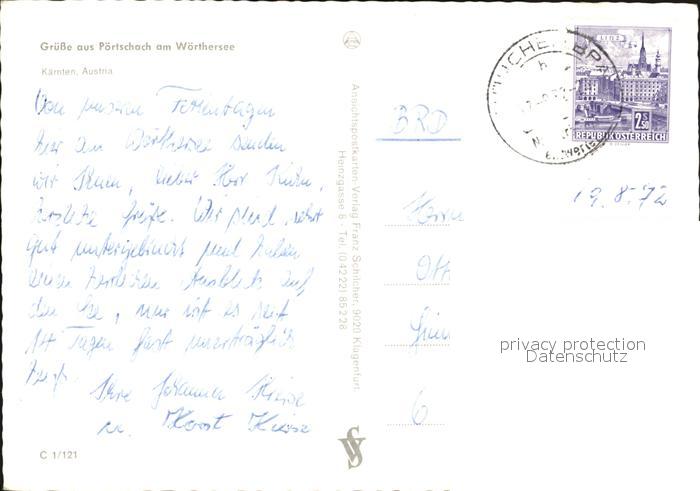 Grüße aus Pörtschach am Wörthersee
Kärnten, Austria
Von unseren Ferientagen
hier am Wörthersee senden
wir Ihnen, lieber Herr
herzliche Grüße. Wir sind sehr
gut untergebracht und haben
einen herrlichen Ausblick auf
den See, nur ist es seit
14 Tagen fast unerträglich
heiß.
Ihre Johanna
u. Horst
C 1/121
Ansichtspostkarten-Verlag Franz Schilcher, 9020 Klagenfurt,
Heinzgasse 6 - Tel. (04222) 85228
BRD
LINZ
2.50
REPUBLIK ÖSTERREICH
19.8.72
Herrn
Ott
6
privacy protection
Datenschutz